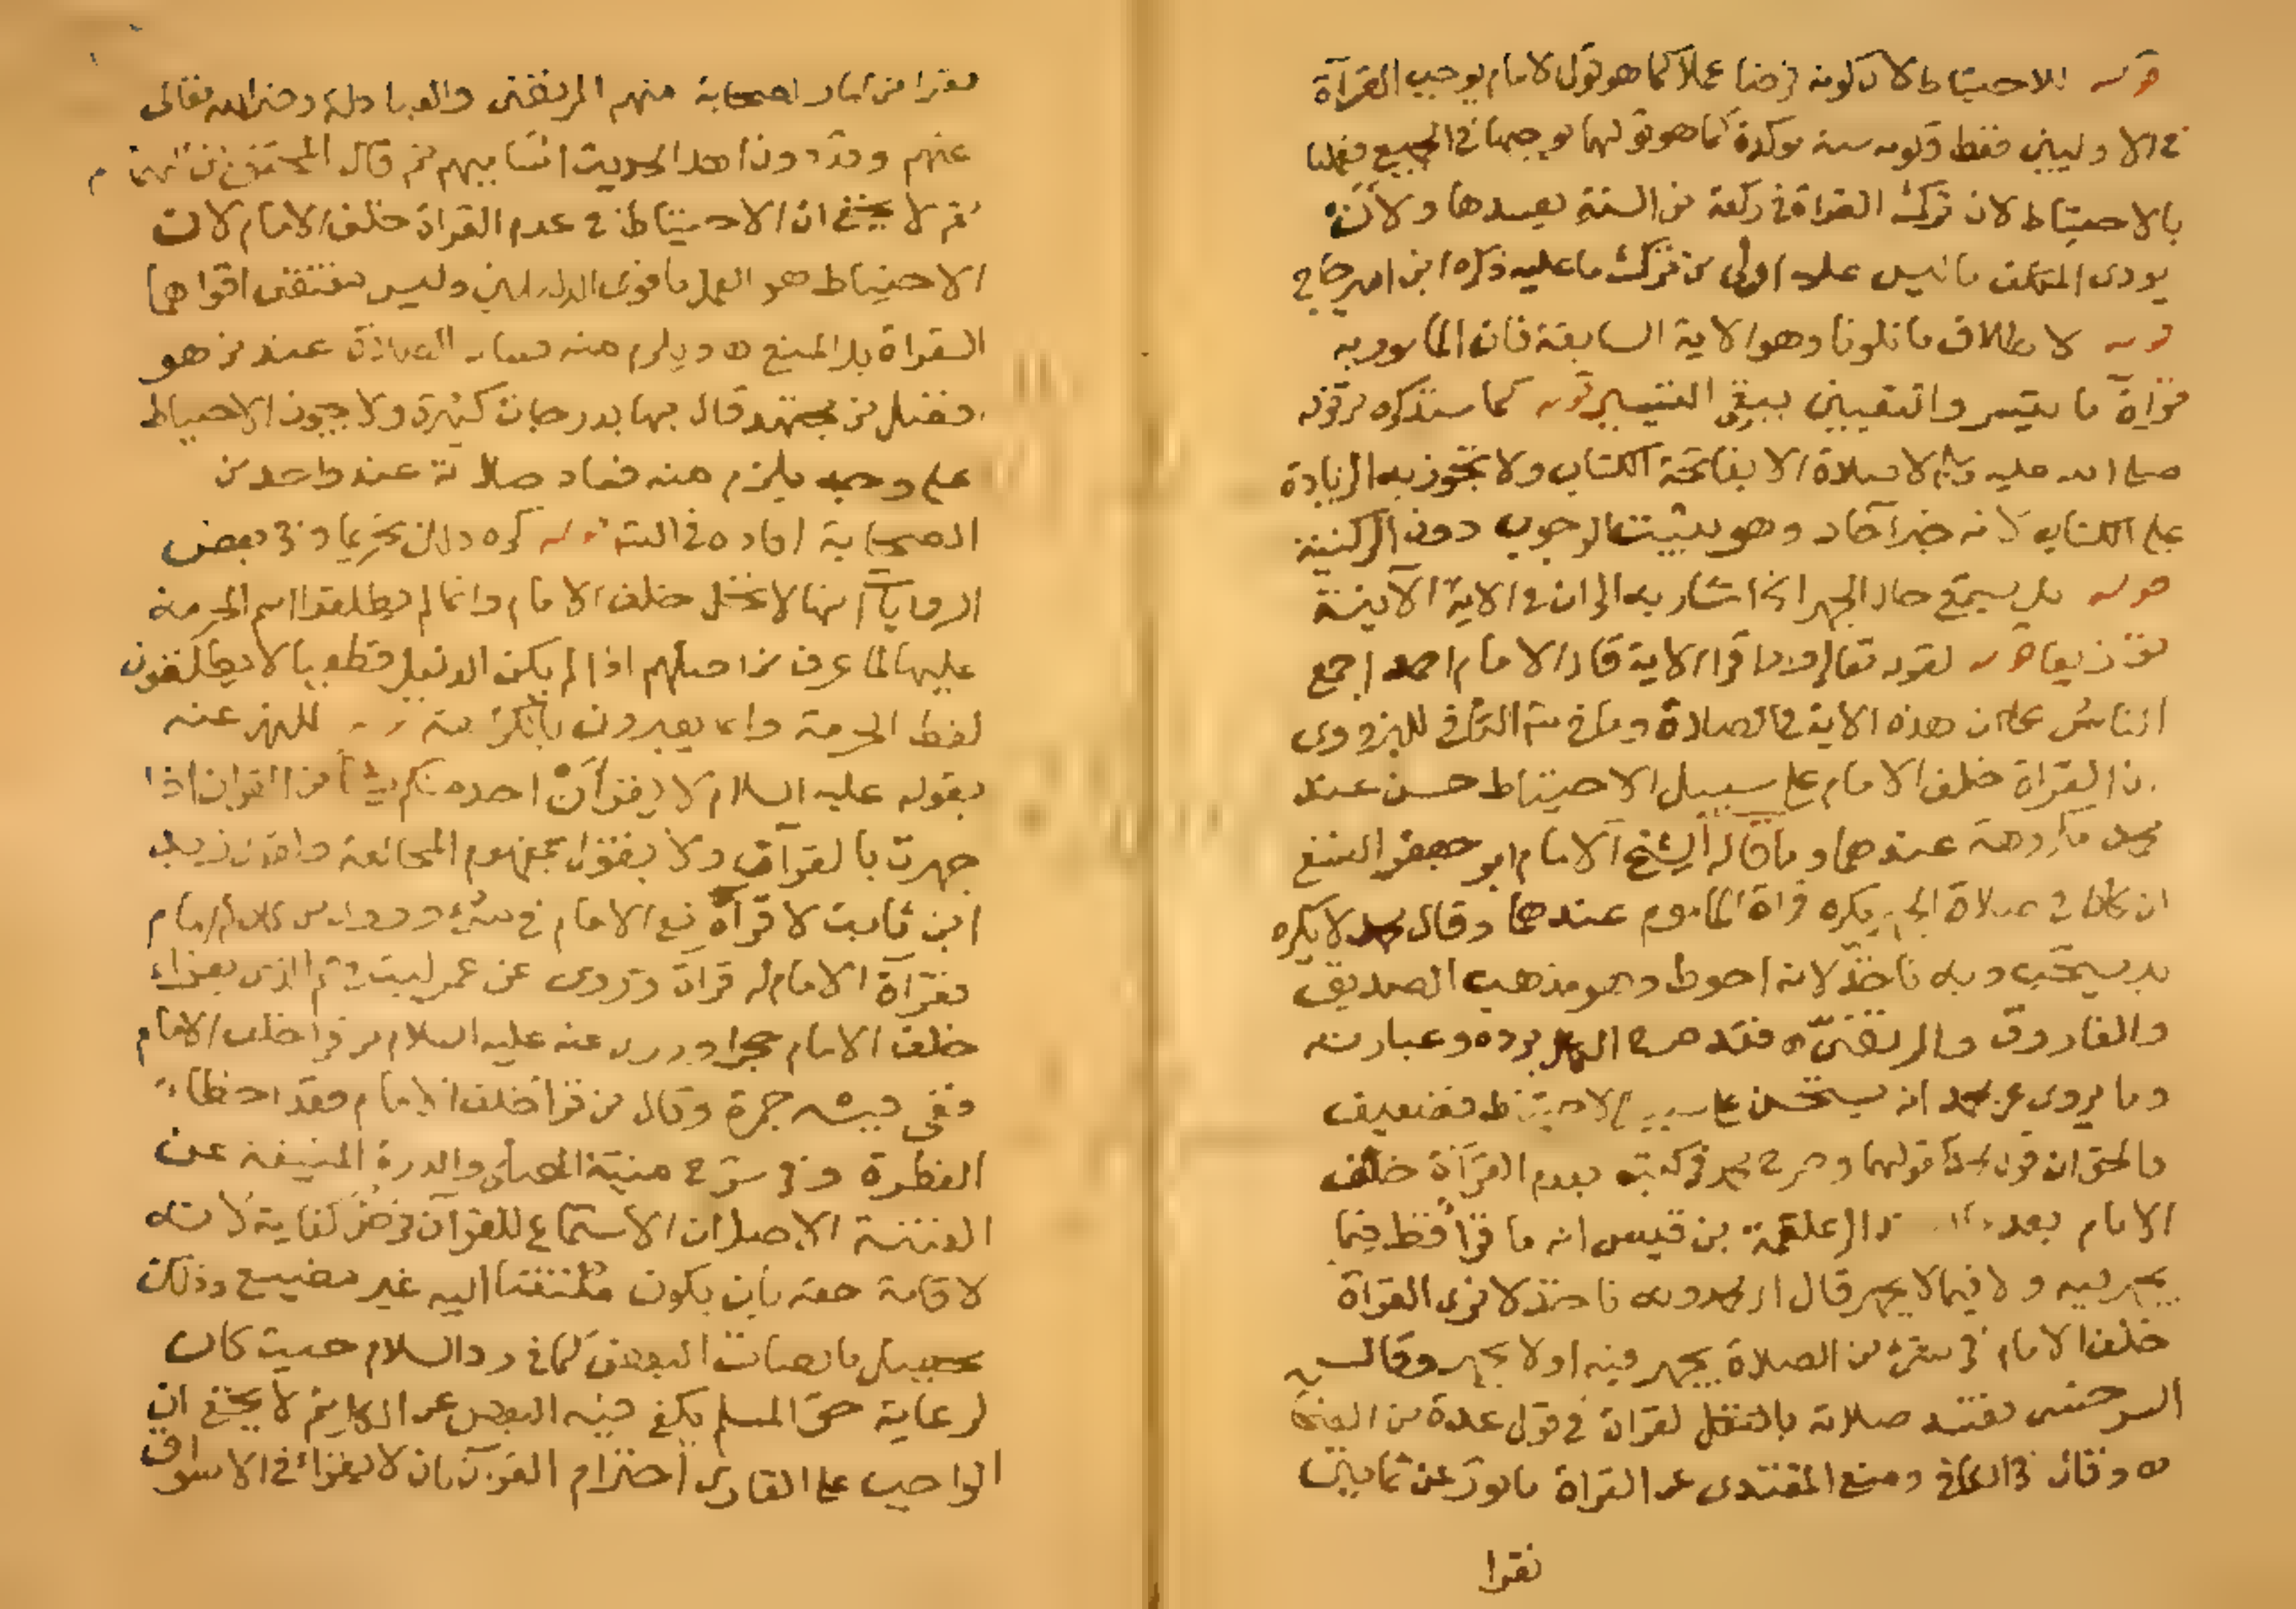 قوله للاحتياط لا لكونه فرضا عملا كما هو قول الامام بوجوب القرآة
في الاوليين فقط وكونه سنة موكدة كما هو قولهما بوجوبها في الجميع فعملنا
بالاحتياط لان ترك القراة في ركعة من السنة يفسدها ولان
يودى المكلف ما ليس عليه اولى من ترك ما عليه ذكره ابن امير حاج
قوله لاطلاق ما تلونا وهو الاية السابقة فان المامور به
قراة ما تيسر والتعيين ينفي التيسير قوله كما سنذكره من قوله
صلى الله عليه وسلم لا صلاة الا بفاتحة الكتاب ولا تجوز به الزيادة
على الكتاب لانه خبر آحاد وهو يثبت الوجوب دون الركنية
قوله بل يستمع حال الجهر الخ اشار به الى ان في الاية الآتية
توزيعا قوله لقوله تعالى واذا قرا الاية قال الامام احمد اجمع
الناس على ان هذه الاية في الصلاة وما في الكافي للبزدوى
ان القراة خلف الامام على سبيل الاحتياط حسن عند
محمد مكروهة عندهما وما قاله الشيخ الامام ابو حفص النسفي
ان كان في صلاة الجهر يكره قراة الماموم عندهما وقال محمد لا يكره
بل يستحب وبه ناخذ لانه احوط وهو مذهب الصديق
والفاروق والمرتضى اه فقد صرح برده وعبارته
وما يروى عن محمد انه يستحسن على سبيل الاحتياط فضعيف
والحق ان قول محمد كقولهما وصرح محمد في كتبه بعدم القرآة خلف
الامام بعد الى علقمة بن قيس انه ما قرأ قط فيما
يجهر فيه ولا فيما لا يجهر قال اى محمد وبه ناخذ لا نرى القرآة
خلف الامام في شئ من الصلاة يجهر فيه او لا يجهر وقال
السرخسي تفسد صلاته بالقراة في قول عدة من الصحابة
اه وقال في الكافي ومنع المقتدى عن القراة ماثور عن ثمانين
نفرا
نفرا من كبار الصحابة منهم المرتضى والعبادلة رضي الله تعالى
عنهم وقد دون اهل الحديث اساميهم ثم قال المحقق ابن الهمام
ثم لا يخفى ان الاحتياط في عدم القراة خلف الامام لان
الاحتياط هو العمل باقوى الدليلين وليس مقتضى اقواهما
القراة بل المنع اه ويلزم منه فساد الصلاة عند من هو
افضل من مجتهد قال بها بدرجات كثيرة ولا يجوز الاحتياط
على وجه يلزم منه فساد صلاته عند واحد من
الصحابة افاده في قوله كره ذلك تحريما وفي بعض
الروايات انها لا تحل خلف الامام وانما لم يطلقوا اسم الحرمة
عليها لما عرف من اصلهم اذا لم يكن الدليل قطعيا لا يطلقون
لفظ الحرمة وانما يعبرون بالكراهة قوله للنهي عنه
بقوله عليه السلام لا يقرأن احدكم شيأ من القران اذا
جهرت بالقرآن ولا يقول بمفهوم المخالفة ولقول زيد
ابن ثابت لا قرآة مع الامام في شئ
فقرآة الامام له قرآة وروى عن عمر ليت في فم الذى يقرأ
خلف الامام حجرا وروى عنه عليه السلام من قرا خلف الامام
ففي فيه جمرة وقال من قرأ خلف الامام فقد اخطا
الفطرة وفي شرح منية المصلى والدرة المنيفة عن
القنية الاصل ان الاستماع للقرآن فرض كفاية لانه
لاقامة حقه بان يكون ملتفتا اليه غير مضيع وذلك
يحصل بانصات البعض كما في رد السلام حيث كان
لرعاية حق المسلم يكفي فيه البعض عن الكل ثم لا يخفى ان
الواجب على القارى احترام القرآن بان لا يقرأه في الاسواق